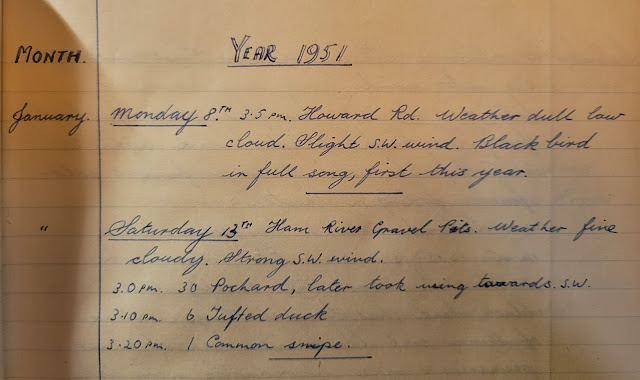 YEAR 1951
MONTH.
January. Monday 8.TH 3.5 pm. Howard Rd. Weather dull low
cloud. Slight S.W. wind. Black bird
in full song, first this year.
" Saturday 13TH Ham River Gravel Pits. Weather fine
cloudy. Strong S.W. wind.
3.0 pm. 30 Pochard, later took wing towards. S.W.
3.10 pm. 6 Tufted duck
3.20 pm. 1 Common snipe.